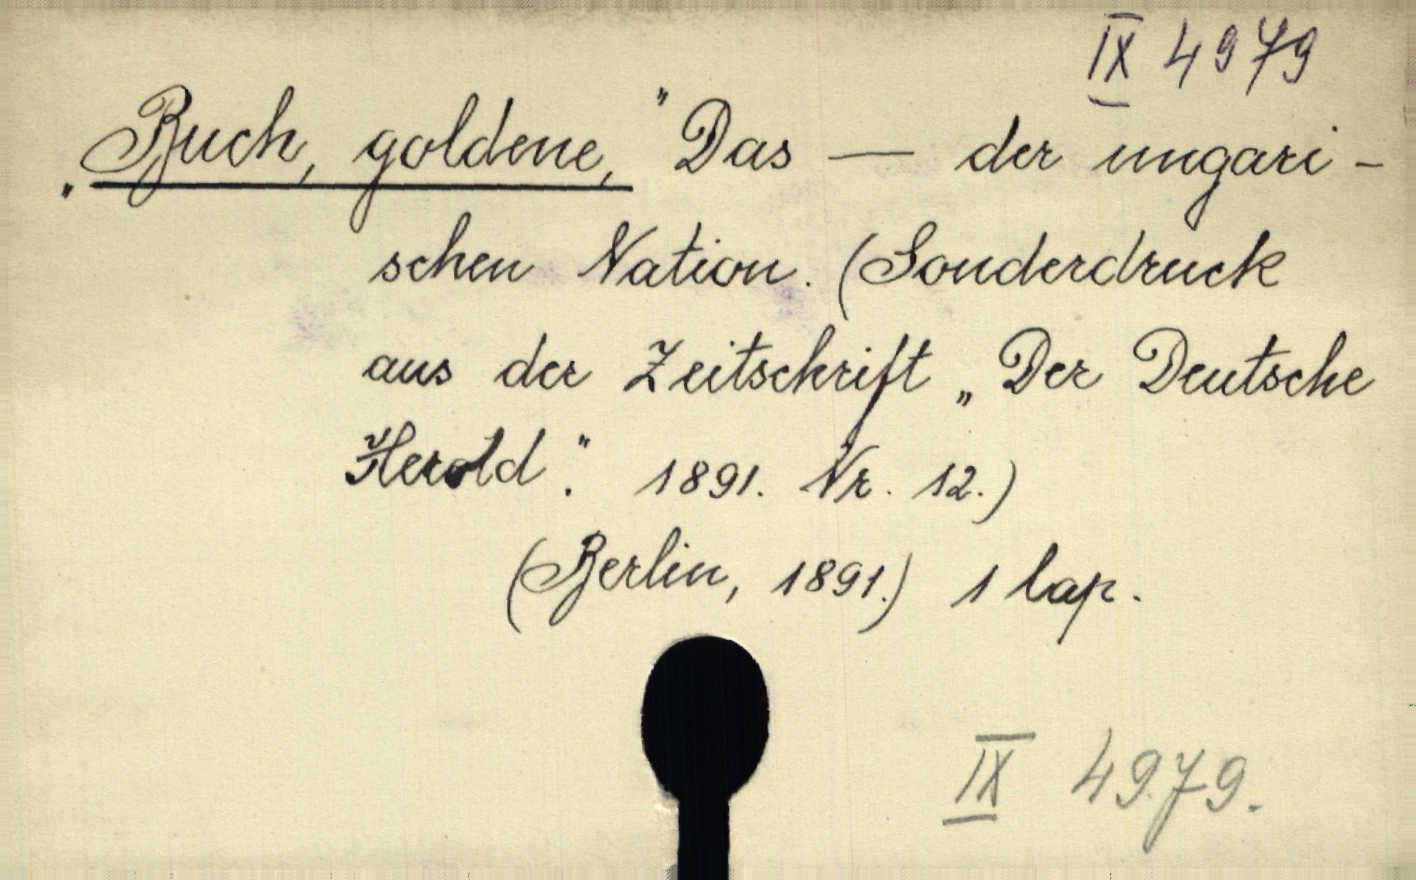 IX 4979
„Buch, goldene," Das — der ungari-
schen Nation. (Sonderdruck
aus der Zeitschrift „Der Deutsche
Herold". 1891. Nr. 12.)
(Berlin, 1891.) 1 lap.
IX 4979.